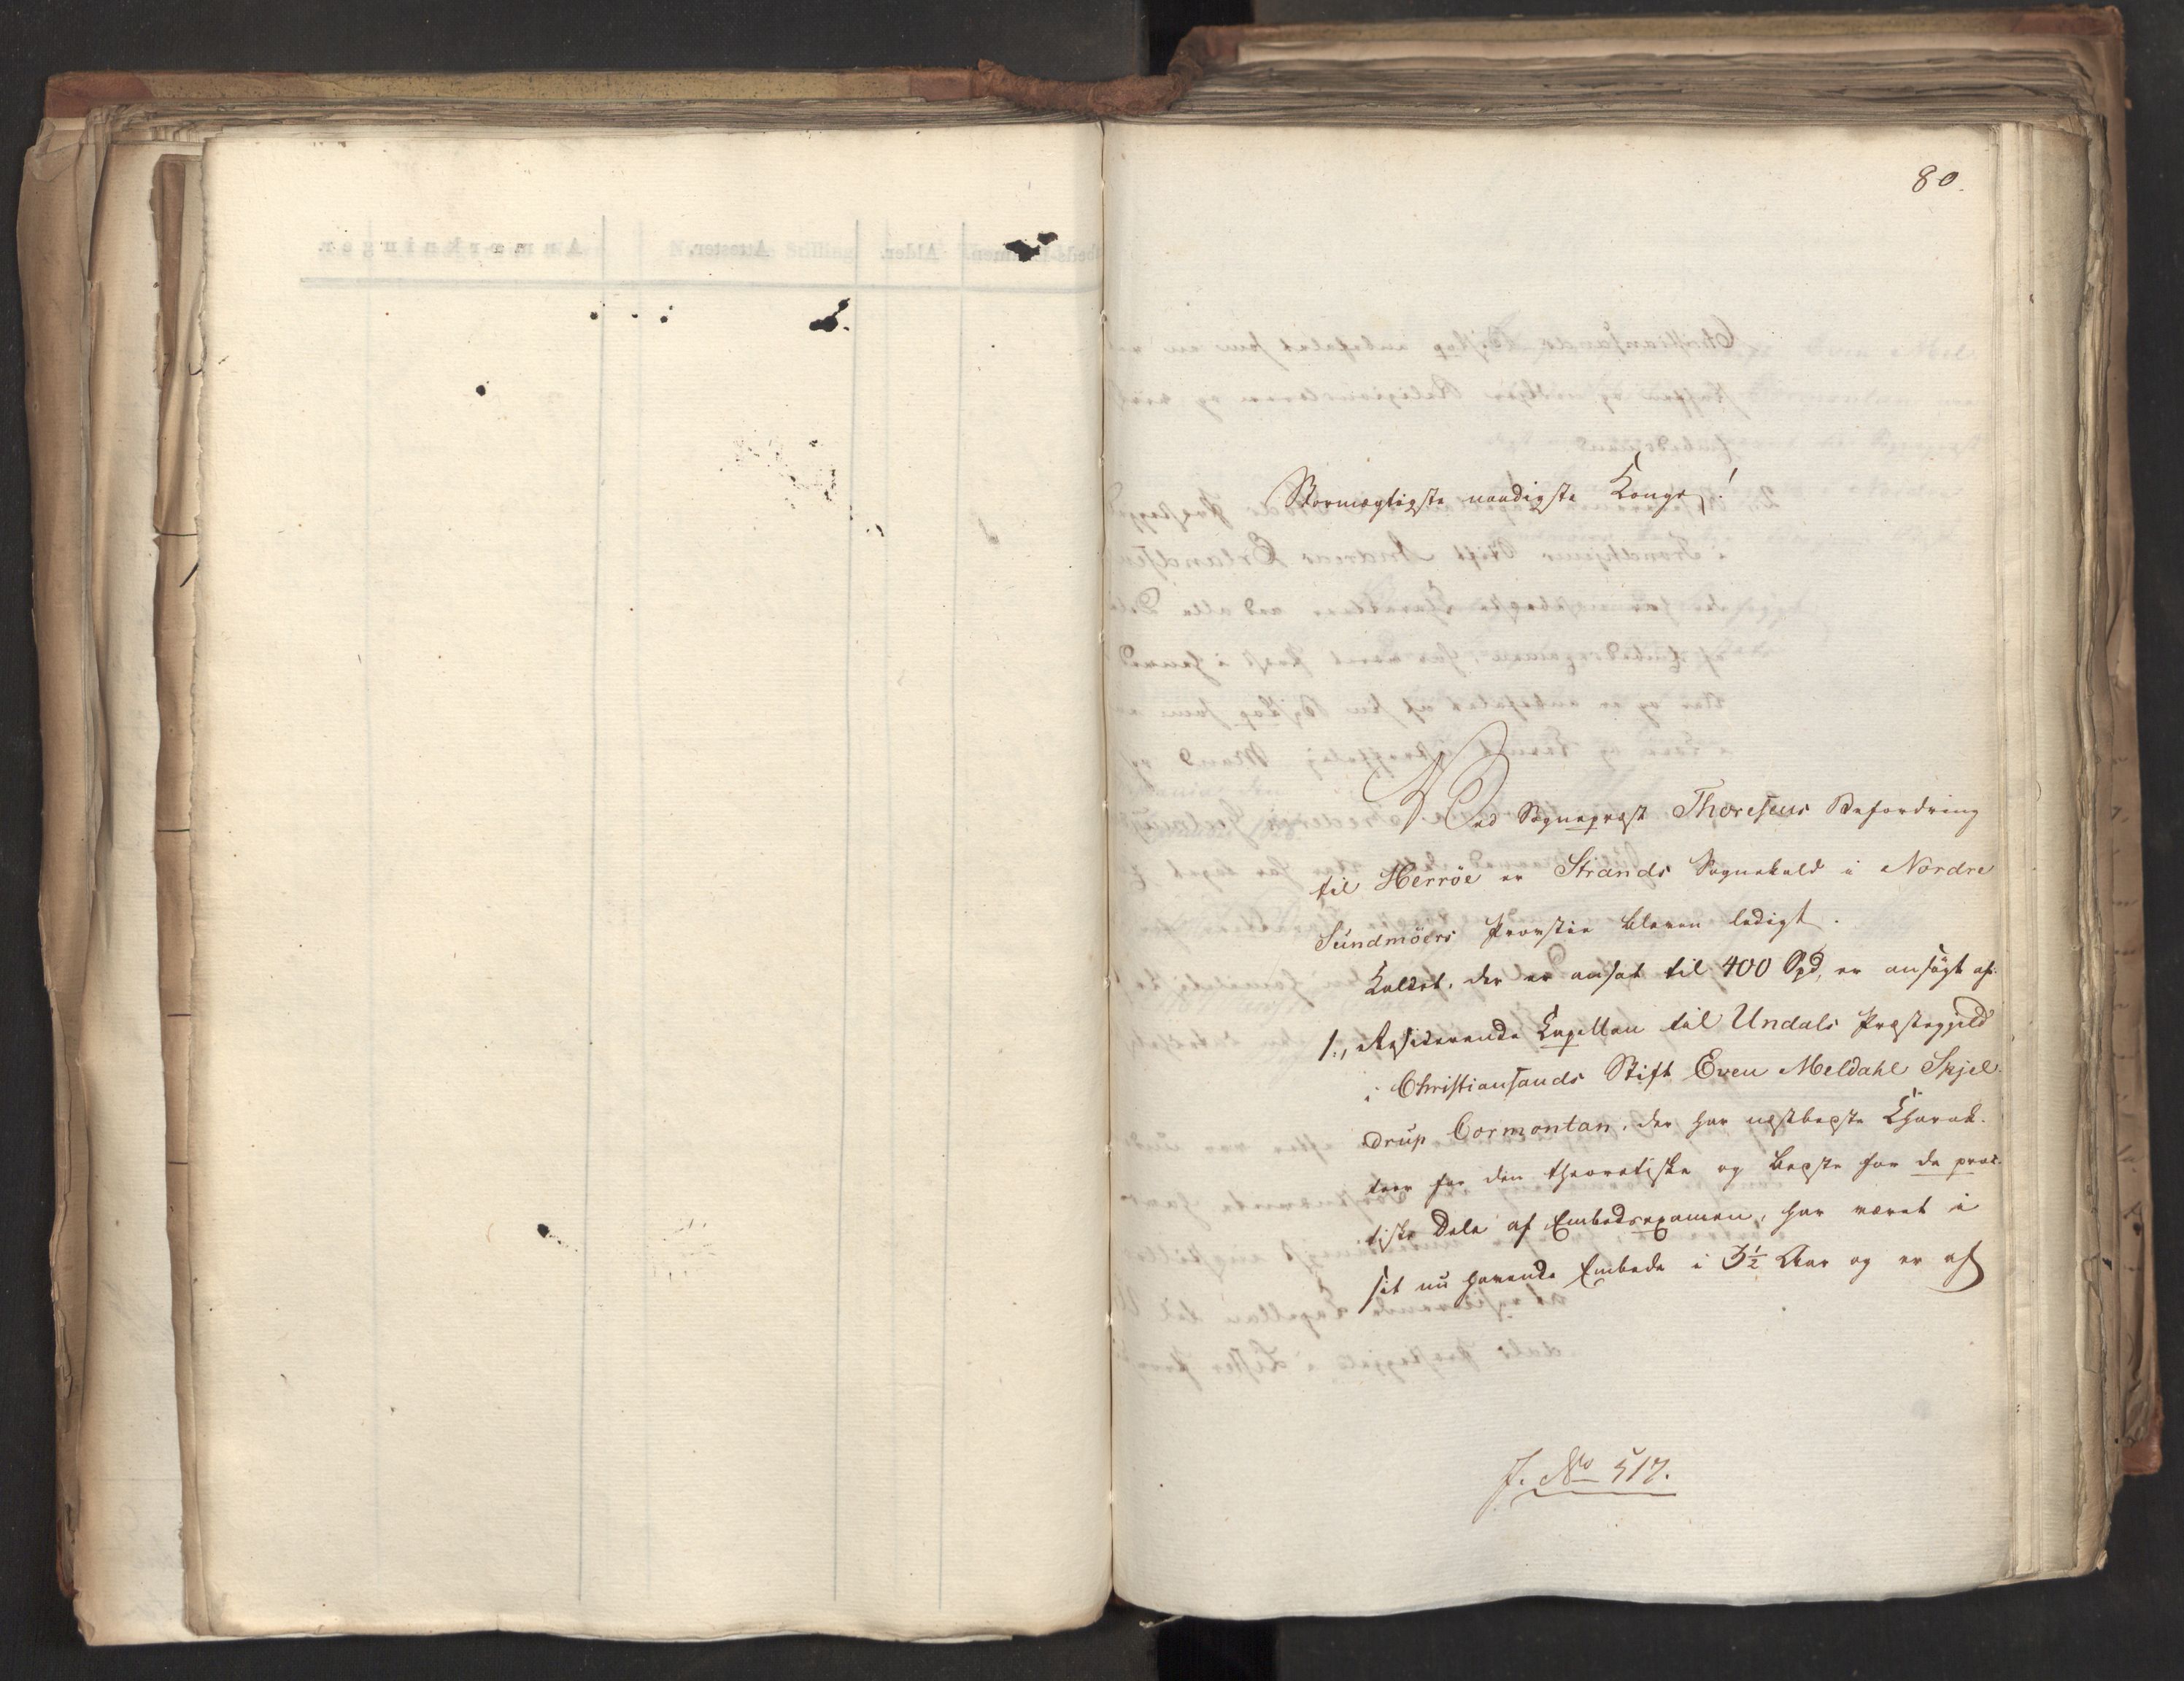 80.
Stormægtigste naadigste Konge!
Ved Sognepræst Thoresens Befordring
til Herröe er Strands Sognekald i Nordre
Sündmöers Provstie bleven ledigt.
Kaldet, der er ansat til 400 Spd, er ansögt af:
1., Residerende Capellan til Undals Præstegjeld
i Christiansands Stift Even Meldahl Skjel-
drup Cormontan, der har næstbedste Charak-
teer for den theoretiske og bedste for de prac-
tiske Dele af Embedsexamen, har været i
sit nu havende Embede i 3½ Aar og er af
J. No 517.